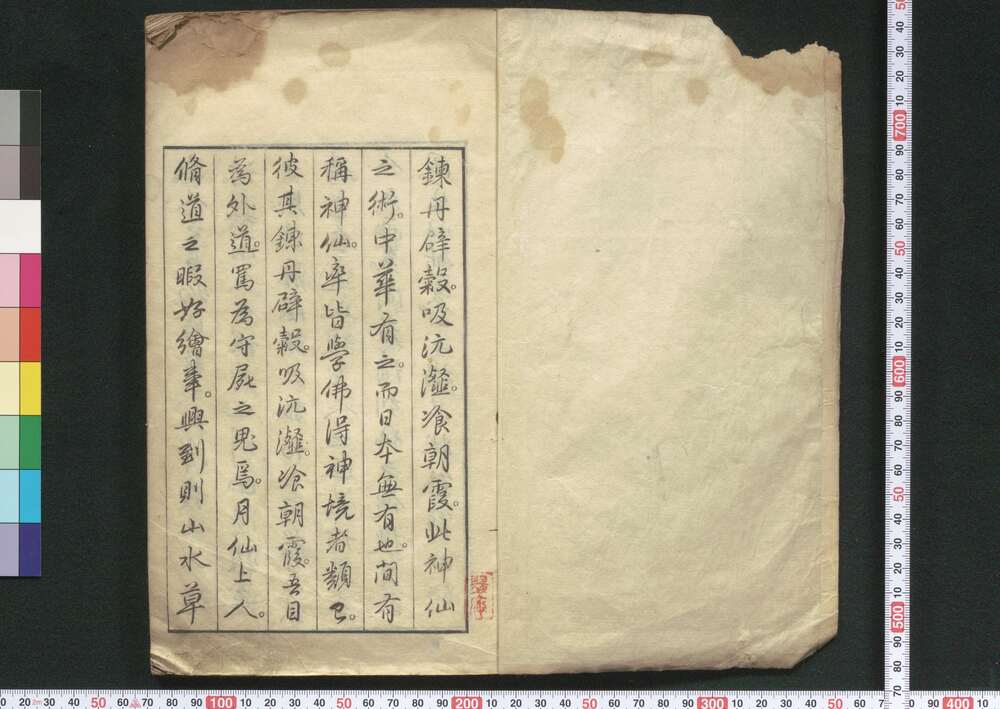 鍊丹辟穀。吸沆瀣。飡朝霞。此神仙
之術。中華有之。而日本無有也。間有
稱神仙。率皆學佛得神境者類已。
彼其鍊丹辟穀。吸沆瀣。飡朝霞。吾目
為外道。罵為守屍之鬼焉。月仙上人。
脩道之暇好繪事。興到則山水草